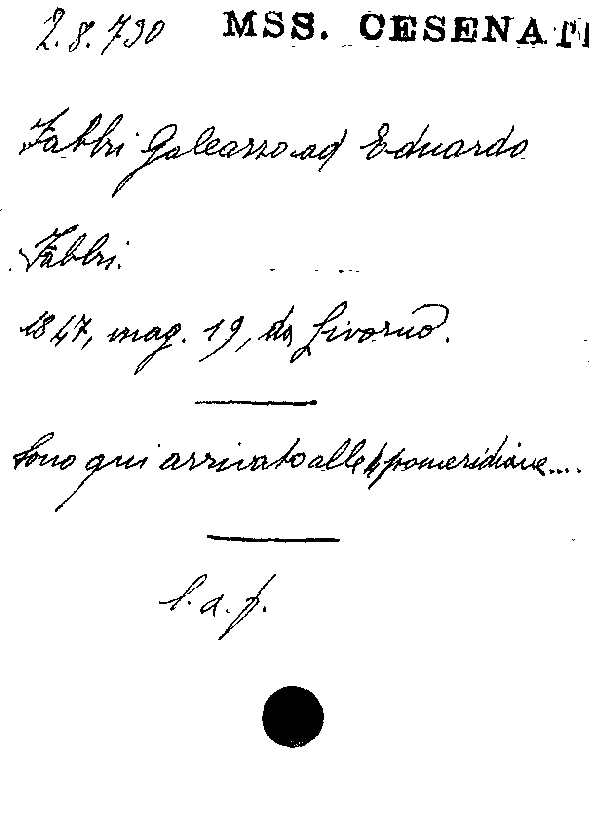 2.8.730 MSS. CESENATI
Fabbri Galeazzo ad Eduardo
Fabbri.
1847, mag. 19, da Livorno.
Sono qui arrivato alle 4 pomeridiane....
l. a. f.